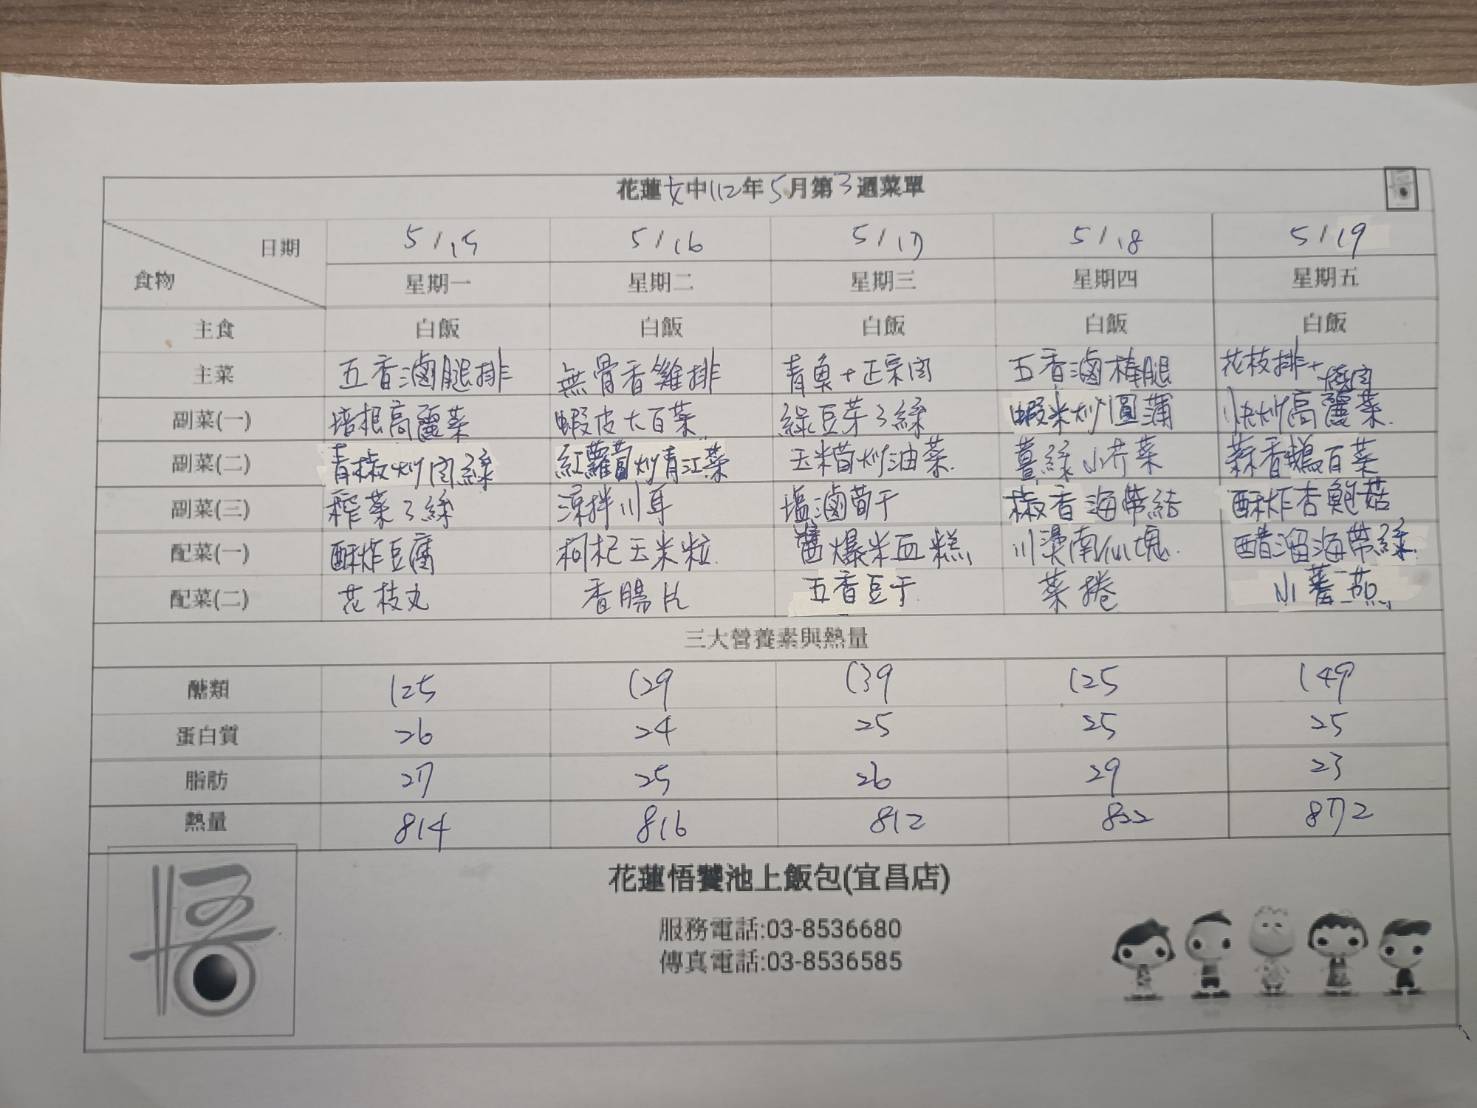 花蓮女中112年5月第3週菜單
日期 5/15 5/16 5/17 5/18 5/19
食物 星期一 星期二 星期三 星期四 星期五
主食 白飯 白飯 白飯 白飯 白飯
主菜 五香滷腿排 無骨香雞排 青魚+正宗肉 五香滷棒腿 花枝排+燒肉
副菜(一) 培根高麗菜 蝦皮大百菜 綠豆芽3絲 蝦米炒圓蒲 快炒高麗菜
副菜(二) 青椒炒肉絲 紅蘿蔔炒青江菜 玉米筍炒油菜 薑絲小芥菜 蒜香鵝百菜
副菜(三) 榨菜3絲 涼拌川耳 塩滷荀干 椒香海帶結 酥炸杏鮑菇
配菜(一) 酥炸豆腐 枸杞玉米粒 醬爆米血糕 川燙南瓜塊 醋溜海帶絲
配菜(二) 花枝丸 香腸片 五香豆干 菜捲 小蕃茄
三大營養素與熱量
醣類 125 129 139 125 149
蛋白質 26 24 25 25 25
脂肪 27 25 26 29 23
熱量 814 816 812 822 872
花蓮悟饕池上飯包(宜昌店)
服務電話:03-8536680
傳真電話:03-8536585
悟